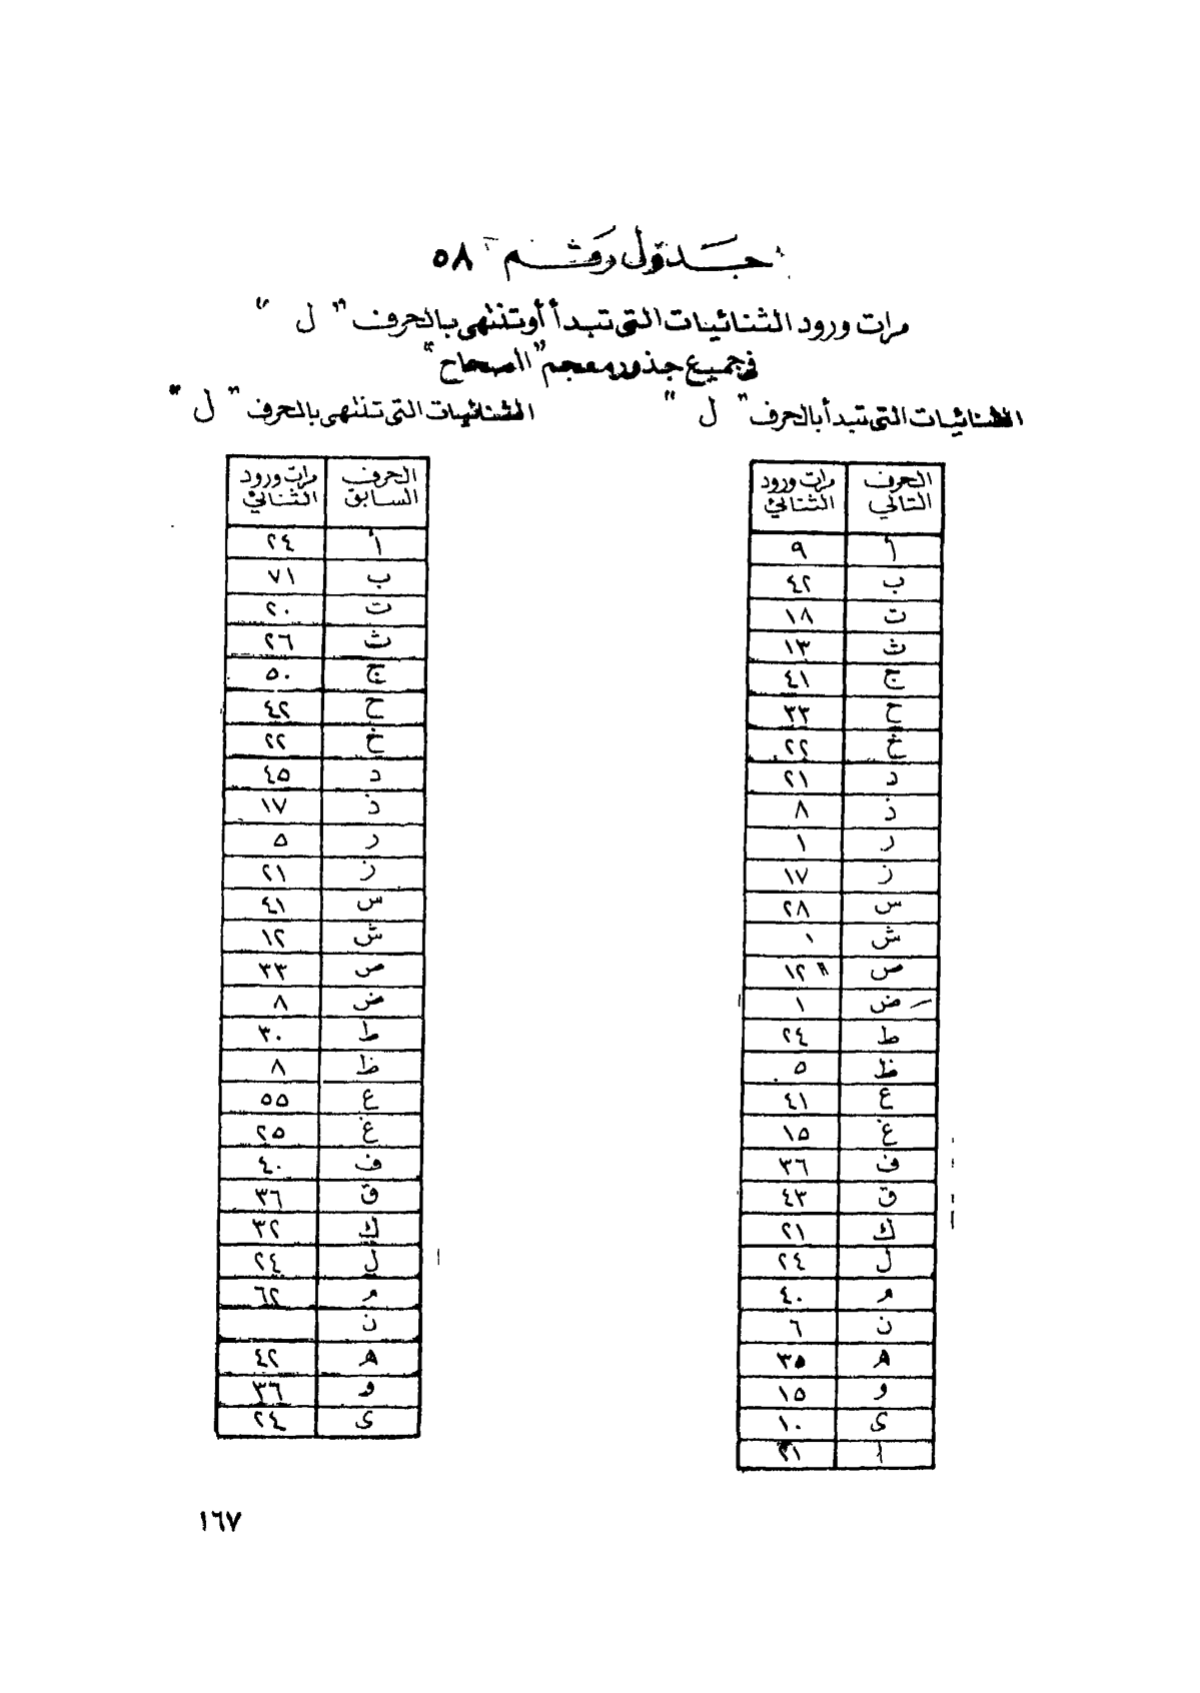 جدول رقم ٥٨
مرات ورود الثنائيات التى تبدأ أو تنتهى بالحرف " ل "
فى جميع جذور معجم "الصحاح"
الثنائيات التى تبدأ بالحرف " ل "
الحرف التالي | مرات ورود الثنائي
أ | ٩
ب | ٤٢
ت | ١٨
ث | ١٣
ج | ٤١
ح | ٣٣
خ | ٢٢
د | ٢١
ذ | ٨
ر | ١
ز | ١٧
س | ٢٨
ش | ١
ص | ١٢
ض | ١
ط | ٢٤
ظ | ٥
ع | ٤١
غ | ١٥
ف | ٣٦
ق | ٤٣
ك | ٢١
ل | ٢٤
م | ٤٠
ن | ٦
ه | ٣٥
و | ١٥
ى | ١٠
ا | ٢١
الثنائيات التى تنتهى بالحرف " ل "
الحرف السابق | مرات ورود الثنائي
أ | ٢٤
ب | ٧١
ت | ٢٠
ث | ٢٦
ج | ٥٠
ح | ٤٢
خ | ٢٢
د | ٤٥
ذ | ١٧
ر | ٥
ز | ٢١
س | ٤١
ش | ١٢
ص | ٣٣
ض | ٨
ط | ٣٠
ظ | ٨
ع | ٥٥
غ | ٢٥
ف | ٤٠
ق | ٣٦
ك | ٣٢
ل | ٢٤
م | ٦٢
ن
ه | ٤٢
و | ٣٦
ى | ٢٤
١٦٧